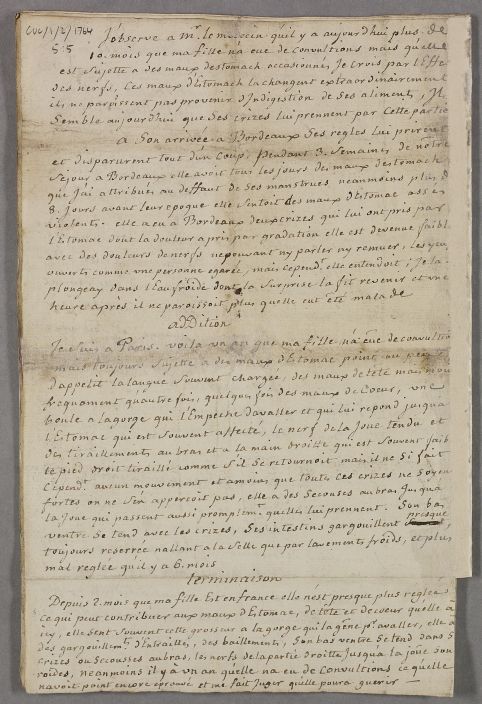 CUL/1/2/1764
S:5
J'observe a mr. le medecin quil y a aujourd'hui plus de
10. mois que ma fille na eue de convultions mais quelle
est sujette a des maux destomach occasionné, Je crois par l'Effet
des nerfs, Ces maux d'Estomach la changent extraordinairement
ils ne paroissent pas provenir d'Indigestion de Ses aliments, Il
Semble aujourdhui que des crizes lui prennent par Cette partie
a Son arrivée a Bordeaux Ses regles lui prirent
et disparurent tout d'un Coup, Pendant 3. Semaines de notre
Sejour a Bordeaux elle avoit tous les jours des maux destomach
que j'ai attribués au deffaut de Ses menstrues neanmoins plus de
8. jours avant leur epoque elle Sentoit des maux d'Estomac assés
violents. elle a eu a Bordeaux deux crizes qui lui ont pris par
l'Estomac dont la douleur a pris par gradation elle est devenue faible
avec des douleurs de nerfs ne pouvant ny parler ny remuer, les yeux
ouverts comme une personne egarée, mais cepend.t elle entendoit; Je la
plongeay dans l'Eau froide dont la Surprise la fit revenir et une
heure après il ne paroissoit plus quelle eut été malade
addition
Je suis a Paris. voila un an que ma fille n'a eue de convultions
mais toujours Sujette a des maux d'Estomac point ou peu
d'appetit la langue Souvent chargée, des maux de tete mais non
frequament quautre fois, quelques fois des maux de Coeur, une
boule a la gorge qui l'Empeche d'avaller et qui lui repond jusqua
l'Estomac qui est Souvent affecté, le nerf de la Joue tendu et
des tiraillements au bras et a la main droitte qui est Souvent faible
le pied droit tiraillé comme S'il Se retournoit, mais il ne Si fait
Cepend.t aucun mouvement et amoins que toutes Ces crizes ne Soyent
fortes on ne S'en appercoit pas, elle a des Secousses au bras Jusqua
la Joue qui passent aussi promptem.t quelles lui prennent. Son bas
ventre Se tend avec les crizes, Ses intestins gargouillent presque
toujours reserrée nallant a la Selle que par lavements froids, et plus
mal reglée quil y a 6. mois
terminaison
Depuis 2. mois que ma fille Est en france elle n'est presque plus reglée
ce qui peut contribuer aux maux d'Estomac, de tete et de coeur quelle a
icy, elle Sent Souvent cette grosseur a la gorge qui la gene p.r avaller, elle a
des gargouillem.ts d'Entrailles, des baillements, Son bas ventre Se tend dans Ses
crizes ou Secousses au bras, les nerfs de la partie droitte Jusqua la joue Sont
roides, neanmoins il y a un an quelle na eu de Convultions ce quelle
navoit point encore eprouvé et me fait Juger quelle poura guerir